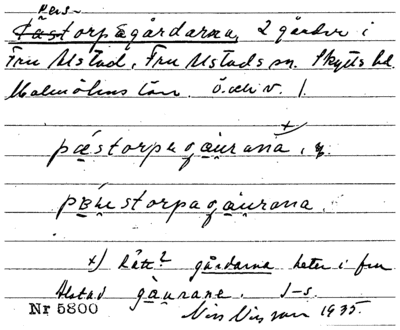 Pers-
Tåstorpagårdarna, 2 gårdar i
Fru Alstad, Fru Alstads sn. Skytts hd.
Malmöhus län. ö. och v. 1.
x
pæstorpagäurana, n.
pæhestorpagäurana.
x) Rätt? gårdarna heter i fru
Alstad gäurane. I-s.
Nr 5800 Nils Nilsson 1935.